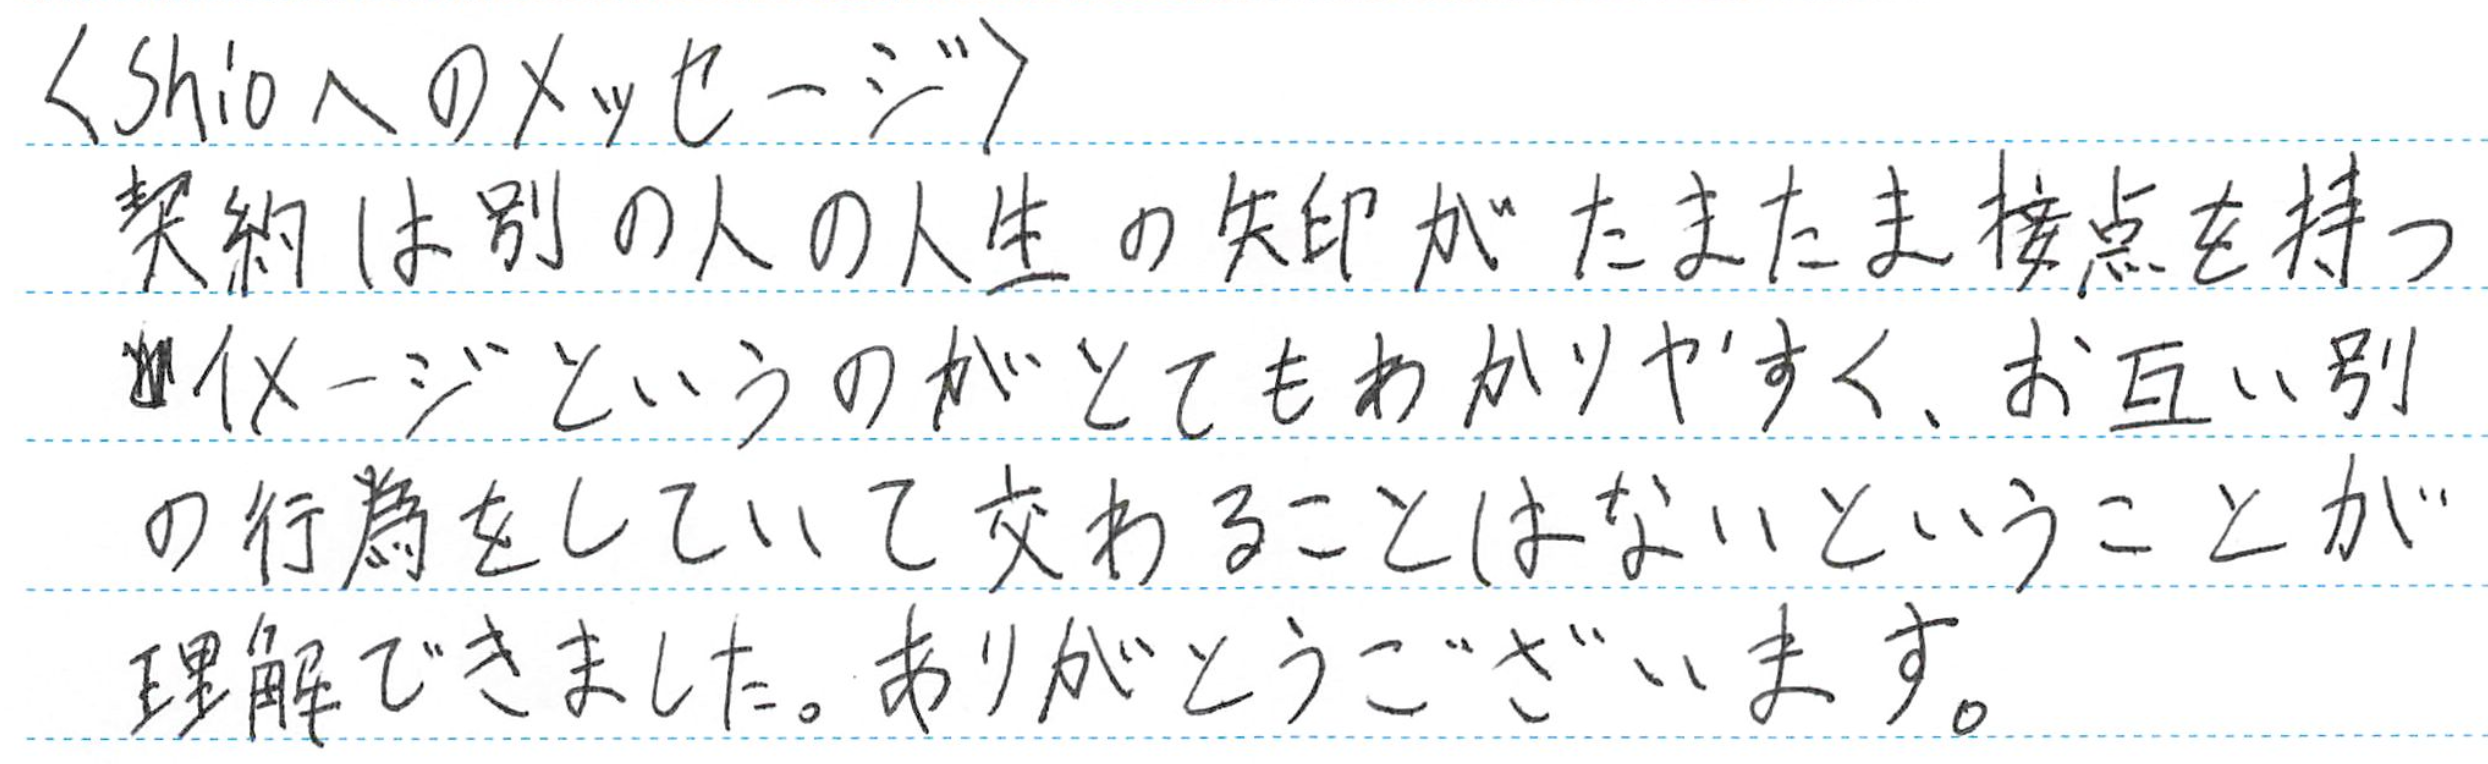 〈Shioへのメッセージ〉
契約は別の人の人生の矢印がたまたま接点を持つ
イメージというのがとてもわかりやすく、お互い別
の行為をしていて交わることはないということが
理解できました。ありがとうございます。